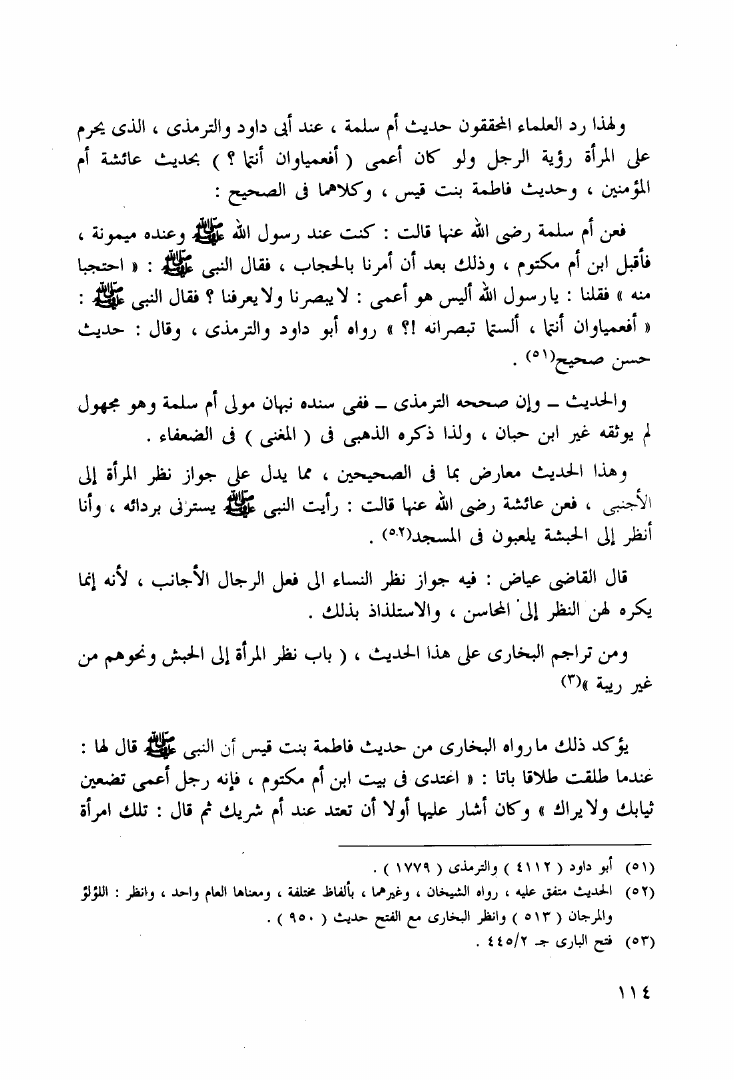 ولهذا رد العلماء المحققون حديث أم سلمة ، عند أبى داود والترمذى ، الذى يحرم
على المرأة رؤية الرجل ولو كان أعمى ( أفعمياوان أنتما ؟ ) بحديث عائشة أم
المؤمنين ، وحديث فاطمة بنت قيس ، وكلاهما فى الصحيح :
فعن أم سلمة رضى الله عنها قالت : كنت عند رسول الله ﷺ وعنده ميمونة ،
فأقبل ابن أم مكتوم ، وذلك بعد أن أمرنا بالحجاب ، فقال النبى ﷺ : « احتجبا
منه » فقلنا : يارسول الله أليس هو أعمى : لايبصرنا ولايعرفنا ؟ فقال النبى ﷺ :
« أفعمياوان أنتما ، ألستما تبصرانه !؟ » رواه أبو داود والترمذى ، وقال : حديث
حسن صحيح(٥١) .
والحديث ــ وإن صححه الترمذى ــ ففى سنده نبهان مولى أم سلمة وهو مجهول
لم يوثقه غير ابن حبان ، ولذا ذكره الذهبى فى ( المغنى ) فى الضعفاء .
وهذا الحديث معارض بما فى الصحيحين ، مما يدل على جواز نظر المرأة إلى
الأجنبى ، فعن عائشة رضى الله عنها قالت : رأيت النبى ﷺ يسترنى بردائه ، وأنا
أنظر إلى الحبشة يلعبون فى المسجد(٥٢) .
قال القاضى عياض : فيه جواز نظر النساء الى فعل الرجال الأجانب ، لأنه إنما
يكره لهن النظر إلى المحاسن ، والاستلذاذ بذلك .
ومن تراجم البخارى على هذا الحديث ، ( باب نظر المرأة إلى الحبش ونحوهم من
غير ريبة »(٣)
يؤكد ذلك مارواه البخارى من حديث فاطمة بنت قيس أن النبى ﷺ قال لها :
عندما طلقت طلاقا باتا : « اعتدى فى بيت ابن أم مكتوم ، فإنه رجل أعمى تضعين
ثيابك ولايراك » وكان أشار عليها أولا أن تعتد عند أم شريك ثم قال : تلك امرأة
(٥١) أبو داود ( ٤١١٢ ) والترمذى ( ١٧٧٩ ) .
(٥٢) الحديث متفق عليه ، رواه الشيخان ، وغيرهما ، بألفاظ مختلفة ، ومعناها العام واحد ، وانظر : اللؤلؤ
والمرجان ( ٥١٣ ) وانظر البخارى مع الفتح حديث ( ٩٥٠ ) .
(٥٣) فتح البارى جـ ٤٤٥/٢ .
١١٤